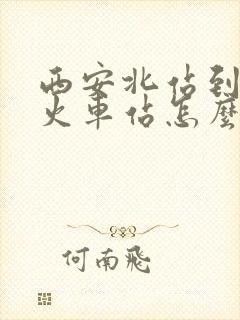 西安北佔到
火車佔怎麼
何南飛